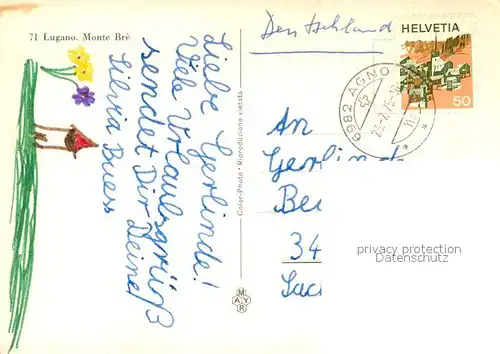 71 Lugano. Monte Brè
Liebe Gerlinde!
Viele Urlaubsgrüß
sendet Dir Deine
Silvia
Color-Photo - Riproduzione vietata
MAYR
Deutschland
HELVETIA
50
6982 AGNO
An
Gerlind
Be
34
privacy protection
Datenschutz